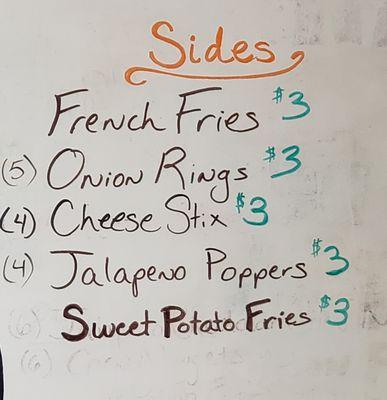 Sides
French Fries $3
(5) Onion Rings $3
(4) Cheese Stix $3
(4) Jalapeno Poppers $3
Sweet Potato Fries $3
(6)